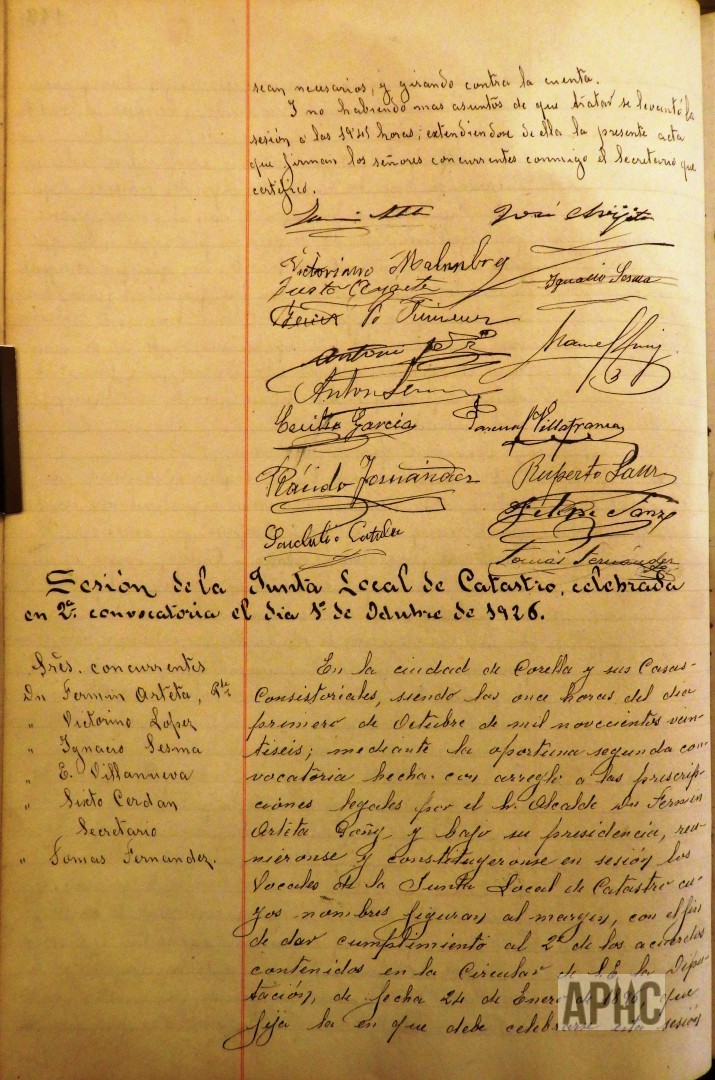 sean necesarios, y girando contra la cuenta.
Y no habiendo mas asuntos de que tratar se levantó la
sesión a las 19'45 horas; extendiendose de ella la presente acta
que firman los señores concurrentes conmigo el Secretario que
certifico.
José Arrijita
Victoriano Malumbrg
Justo Ayete
Ignacio Sesma
Jimenez
Antonio
Manuel
Anton
Cecilio García
Pascual Villafranca
Plácido Fernández
Ruperto Sanz
Felipe Sanz
Catalan
Tomás Fernández
Sesión de la Junta Local de Catastro, celebrada
en 2ª convocatoria el dia 1º de Octubre de 1926.
Sres. concurrentes
Dn Fermin Arteta, Pte
" Victorino Lopez
" Ignacio Sesma
" E. Villanueva
" Sixto Cerdan
Secretario
" Tomas Fernandez.
En la ciudad de Corella y sus Casas-
Consistoriales, siendo las once horas del dia
primero de Octubre de mil novecientos vein-
tiseis; mediante la oportuna segunda con-
vocatoria hecha con arreglo a las prescrip-
ciones legales por el Sr. Alcalde Dn Fermin
Arteta Goñy y bajo su presidencia, reu-
nieronse y constituyeronse en sesión los
Vocales de la Junta Local de Catastro cu-
yos nombres figuran al margen, con el fin
de dar cumplimiento al 2º de los acuerdos
contenidos en la Circular de S.E. la Dipu-
tación, de fecha 24 de Enero de que
fija la en que debe celebrarse esta sesión
APHC